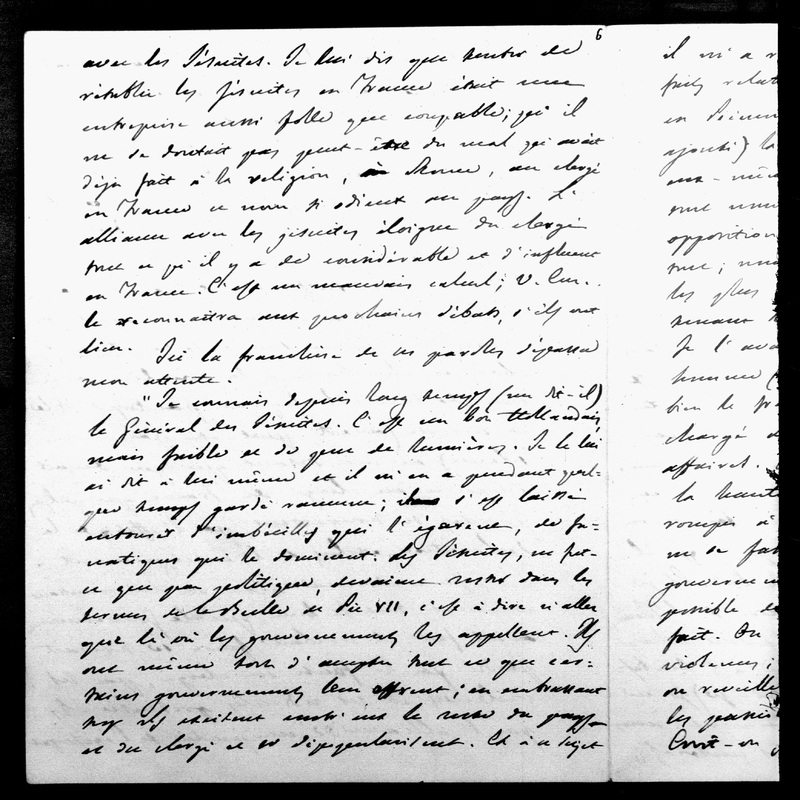 6
avec les Jésuites. Je lui dis que tenter de
rétablir les Jésuites en France était une
entreprise aussi folle que coupable; qu'il
ne se doutait pas peut-être du mal qui avait
déjà fait à la religion, à Rome, au clergé
en France ce nom si odieux au pays. L'
alliance avec les jésuites éloigne du clergé
tout ce qu'il y a de considérable et d'influent
en France. C'est un mauvais calcul; V. Em.
le reconnaîtra aux prochains débats, s'ils ont
lieu. Ici la franchise de ses paroles dépassa
mon attente.
"Je connais depuis long temps (me dit-il)
le Général des Jésuites. C'est un bon Hollandais
mais faible et de peu de lumières. Je le lui
ai dit à lui même et il m'en a pendant quel-
que temps gardé rancune; il s'est laissé
entourer d'imbécilles qui l'égarent, de fa-
natiques qui le dominent. Les Jésuites, ne fut-
ce que par politique, devraient rester dans les
termes de la Bulle de Pie VII, c'est à dire n'aller
que là où les gouvernements les appellent. Ils
ont même tort d'accepter tout ce que cer-
tains gouvernements leur offrent; en embrassant
trop ils excitent contre eux le reste du pays
et du clergé et se dépopularisent. Et à ce sujet
il m'a
faits relat
en
ajouta) la
eux-mê
opposition
les plus
Je l'ava
bien le
chargé d
affaires.
la haut
rompis à
ne se fas
gouvernem
possible d
fait. On
violences;
on reveille
les passi
Croit-on